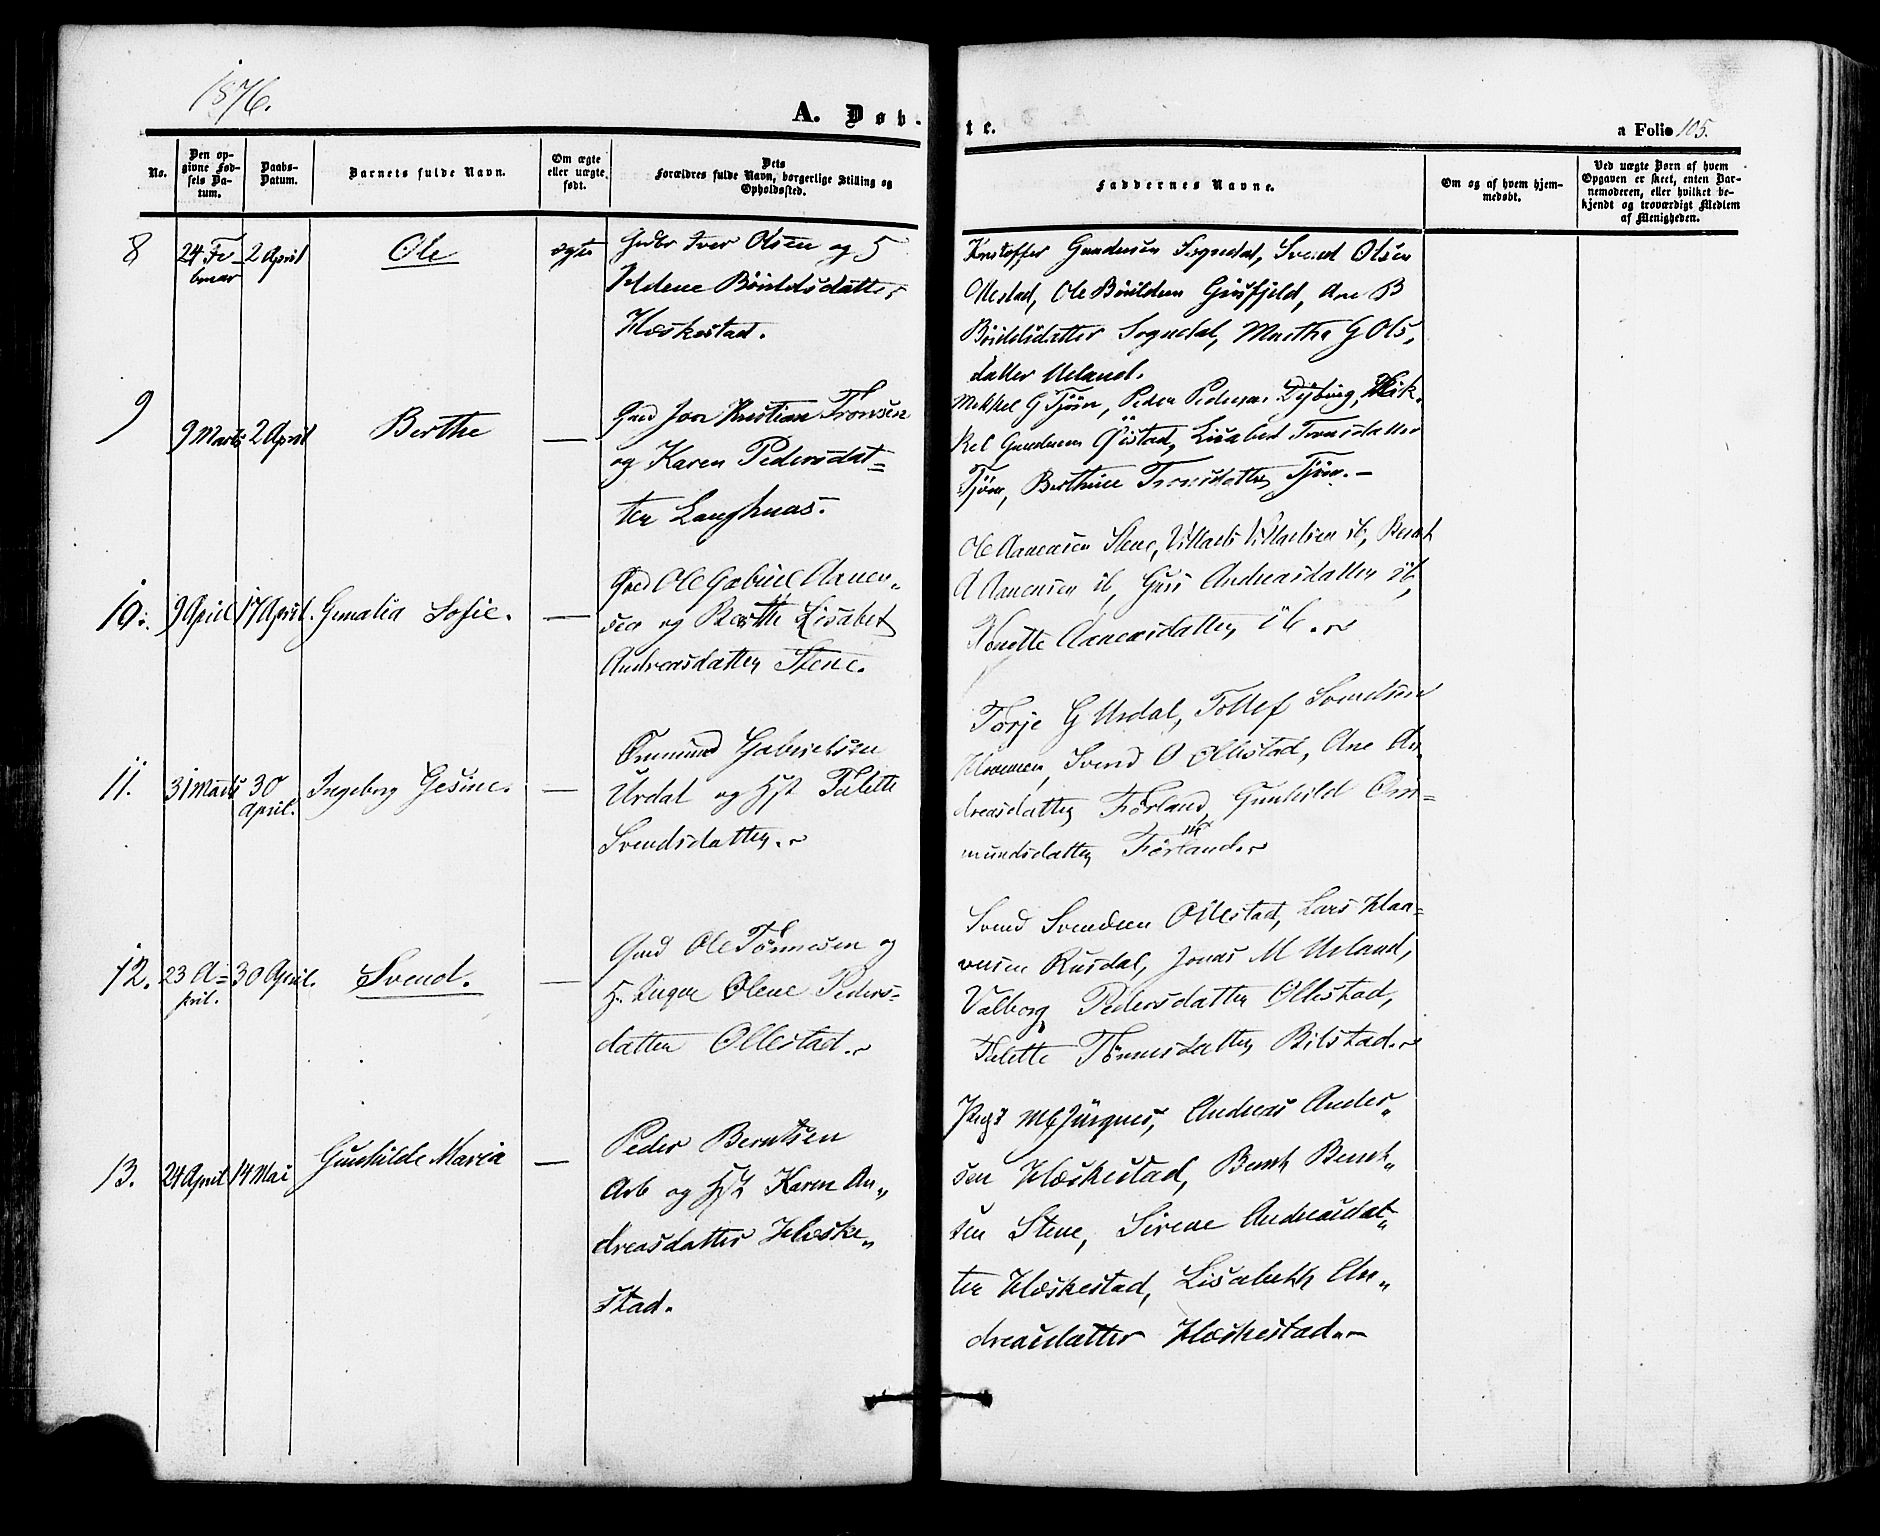 1876.
A. Døb-
te.
a Folio 105.
No.
Den op-
givne Fød-
sels Da-
tum.
Daabs-
Datum.
Barnets fulde Navn.
Om ægte
eller uægte
født.
Dets
Forældres fulde Navn, borgerlige Stilling og
Opholdssted.
Faddernes Navne.
Om og af hvem hjem-
medøbt.
Ved uægte Børn af hvem
Opgaven er skeet, enten Bar-
nemoderen, eller hvilket be-
kjendt og troværdigt Medlem
af Menigheden.
8
24 Fe-
bruar
2 April
Ole
ægte
Iver Olsen og
Helene Böildsdatter
Hæskestad.
Kristoffer Gundersen Sogndal, Svend Olsen
Ollestad, Ole Böildsen Ane B
Böildsdatter Sogndal, Marthe G Ols-
datter Ueland.
9
9 Marts
2 April
Berthe
—
Gmd Jon Kristian Tronsen
og Karen Pedersdat=
ter Langhuus.
Mikkel G Tjörn, Peder Pedersen Dybing, Mik-
kel Gundersen Öistad, Lisabet Tronsdatter
Tjörn, Berthine Tronsdatter Tjörn.-
10.
9 April
17 April.
Gemalia Sofie.
—
Gmd Ole Gabriel Aanen-
sen og Berthe Lisabet
Andreasdatter Stene.
Ole Aanensen Stene, Villads Villadsen ib, Bernt
A Aanensen ib, Guri Andreasdatter ib,
Aanensdatter ib.
11.
31 Marts
30
April.
Ingeborg Gesine.
—
Ommund Gabrielsen
Urdal og Hst Talette
Svendsdatter.
Torje G Urdal, Tollef Svendsen
Svend O Ollestad, Ane An-
dreasdatter Förland, Gunhild Om=
mundsdatter Förland.
12.
23 A=
pril.
30 April.
Svend.
—
Gmd Ole Tönnesen og
H. Inger Olene Peders-
datter Ollestad.
Svend Svendsen Ollestad, Lars Haa=
versen Rusdal, Jonas M Ueland,
Valborg Pedersdatter Ollestad,
Talette Tönnesdatter Bilstad.
13.
24 April
14 Mai
Gunhilde Maria
—
Peder Berntsen
Arb og Hst Karen An-
dreasdatter Hæske-
stad.
Andreas Ander-
sen Hæskestad, Bernt Bernt-
sen Stene, Sirene Andreasdat-
ter Hæskestad, Lisabeth An-
dreasdatter Hæskestad.